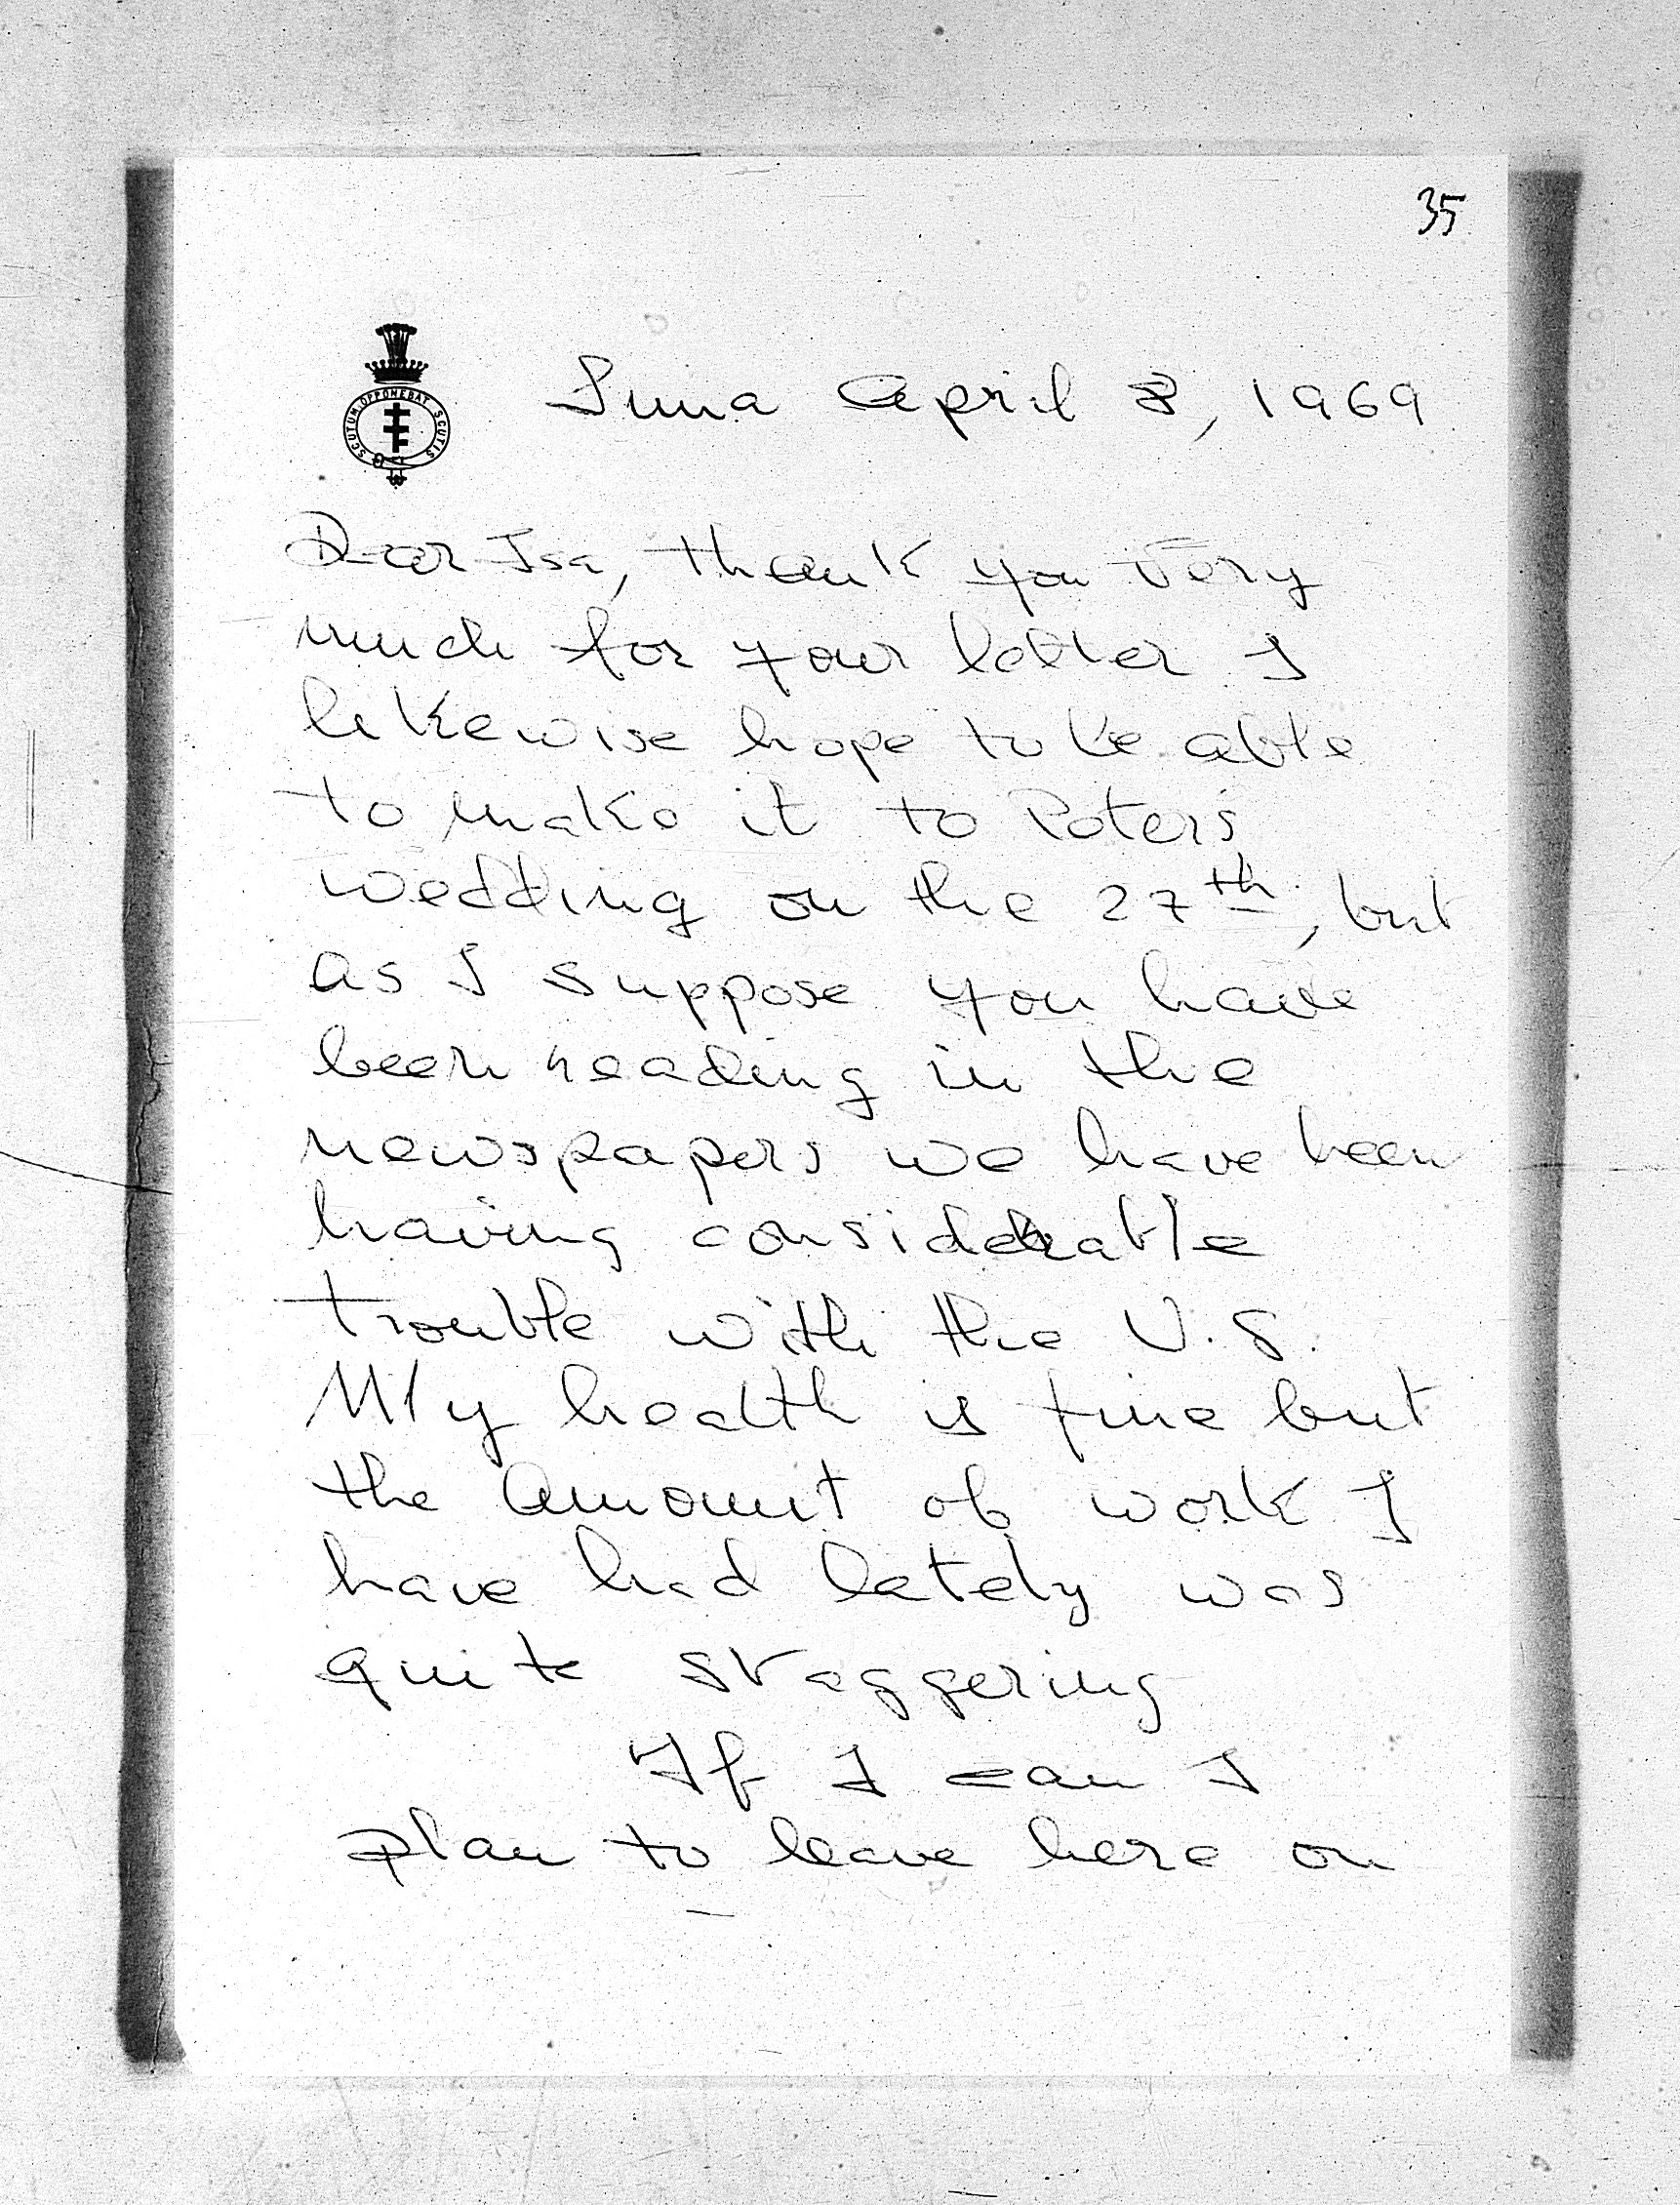 35
SCUTUM OPPONEBAT SCUTIS
Lima April 8, 1969
Dear Isa, thank you very
much for your letter I
likewise hope to be able
to make it to Peter's
wedding on the 27th, but
as I suppose you have
been reading in the
newspapers we have been
having considerable
trouble with the U.S.
My health is fine but
the amount of work I
have had lately was
quite staggering
If I can I
plan to leave here on